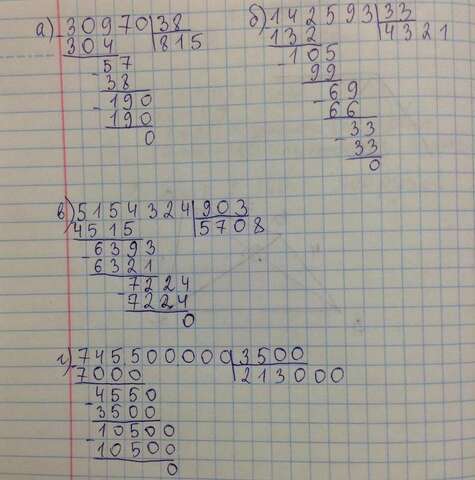 а) 30970 | 38
304 | 815
- 57
38
- 190
190
0
б) 142593 | 33
132 | 4321
- 105
99
- 69
66
- 33
33
0
в) 5154324 | 903
4515 | 5708
- 6393
6321
- 7224
7224
0
г) 745500000 | 3500
7000 | 213000
- 4550
3500
- 10500
10500
0